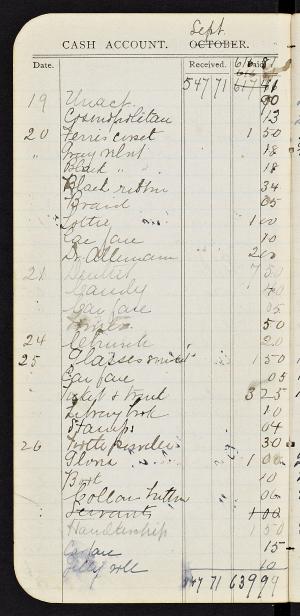 Sept.
CASH ACCOUNT. OCTOBER.
Date. Received. Paid.
547 71
19 Unact. 90
Cosmopolitan 13
20 Ferris corset 1 50
" Gray velvt 18
Black " 18
Black ribbon 34
Braid 05
Lottie 1 00
Car fare 10
Dr. Alleman 2 00
21 Dentist 7 50
Candy 40
Car fare 05
50
24 Church 20
25 Glasses 1 50
Car fare 05
Ticket & 3 25
Library book 10
Stamps 04
26 Tooth powder 30
Gloria 1 00
Boat 10
Collar button 06
Servants 1 00
Handkerchief 1 50
Carfare 15
Jelly roll 10
547 71 639 99